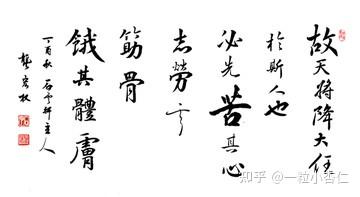 故天將降大任
於斯人也
必先苦其心
志勞其
筋骨
餓其體膚
丁酉秋 石軒主人
知乎 @一粒小杏仁